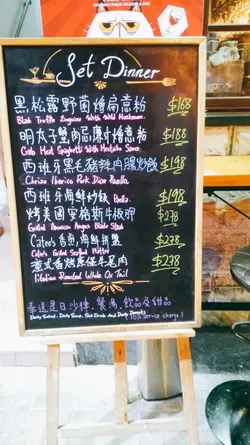 Set Dinner
黑松露野菌燴扁意粉 $168
Black Truffle Linguine With Wild Mushroom
明太子蟹肉忌廉汁燴意粉 $188
Crab Meat Spaghetti With Mentaiko Sauce
西班牙黑毛豬辣肉腸炒飯 $198
Chorizo Iberico Pork Dice Paella
西班牙海鮮炒飯 Paella $198
烤美國安格斯牛板腱 $278
Grilled American Angus Blade Steak
Cateo's 香煎海鮮拼盤 $278
Grilled Seafood Platter
意式香烤原條牛尾肉 $278
Roasted Whole Ox Tail
奉送是日沙律，餐湯，飲品及甜品
Daily Salad, Daily Soup, Soft Drinks And Daily Dessert
(10% Service charge)